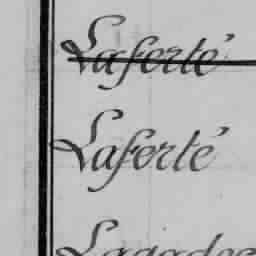 Laferté
Laferté